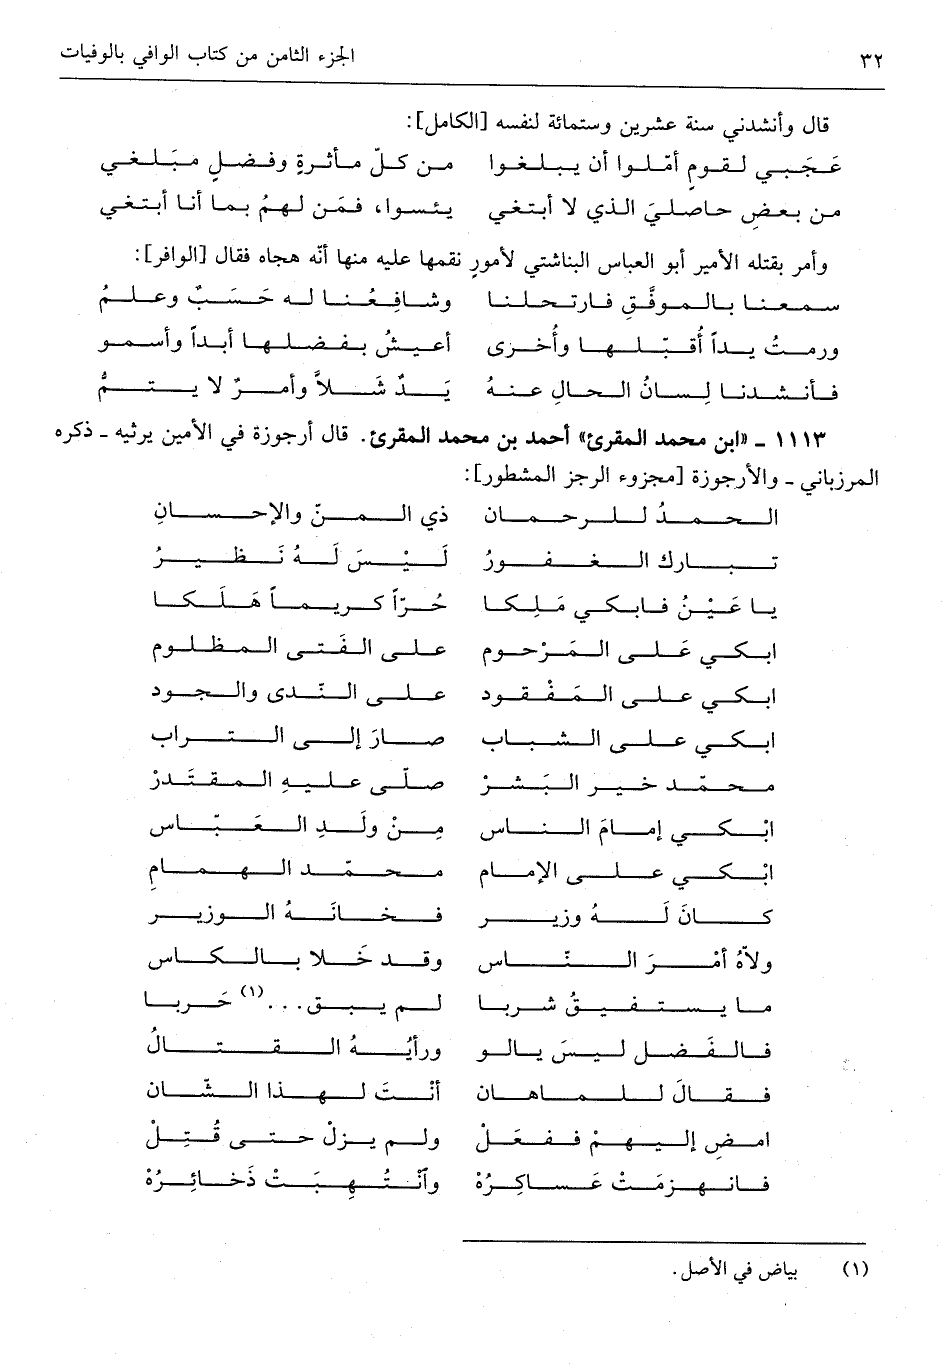 ٣٢ الجزء الثامن من كتاب الوافي بالوفيات
قال وأنشدني سنة عشرين وستمائة لنفسه [الكامل]:
عَجَبي لقومٍ أمّلوا أن يبلغوا من كلّ مأثرةٍ وفضلٍ مَبْلغي
من بعضِ حاصليَ الذي لا أبتغي يئسوا، فمَن لهمُ بما أنا أبتغي
وأمر بقتله الأمير أبو العباس البناشتي لأمورٍ نقمها عليه منها أنّه هجاه فقال [الوافر]:
سمعنا بالموفَّقِ فارتحلنا وشافِعُنا له حَسَبٌ وعلمُ
ورمتُ يداً أُقبّلها وأُخرى أعيشُ بفضلها أبداً وأسمو
فأنشدنا لِسانُ الحالِ عنهُ يَدٌ شَلاًّ وأمرٌ لا يتمُّ
١١١٣ ـ «ابن محمد المقرئ» أحمد بن محمد المقرئ. قال أرجوزة في الأمين يرثيه ـ ذكره
المرزباني ـ والأرجوزة [مجزوء الرجز المشطور]:
الحمدُ للرحمان ذي المنّ والإحسانِ
تبارك الغفورُ لَيْسَ لَهُ نَظيرُ
يا عَيْنُ فابكي مَلِكا حُرّاً كريماً هَلَكا
ابكي عَلى المَرْحوم على الفَتى المظلومِ
ابكي على المَفْقود على النّدى والجود
ابكي على الشباب صارَ إلى التراب
محمّد خير البَشرْ صلّى عليهِ المقتَدرْ
ابْكي إمامَ الناس مِنْ ولَدِ العَبّاس
ابْكي على الإمام محمّد الهمامِ
كانَ لَهُ وزير فخانَهُ الوزير
ولاّهُ أمْرَ النّاس وقد خَلا بالكاس
ما يستفيقُ شربا لم يبق...(١) حَربا
فالفَضل ليسَ يالو ورأيُهُ القتالُ
فقالَ للماهان أنْتَ لهذا الشّان
امضِ إليهمْ ففعَلْ ولم يزلْ حتى قُتِلْ
فانهزمَتْ عَساكِرُهْ وآنْتُهِبَتْ ذَخائِرُهْ
(١) بياض في الأصل.